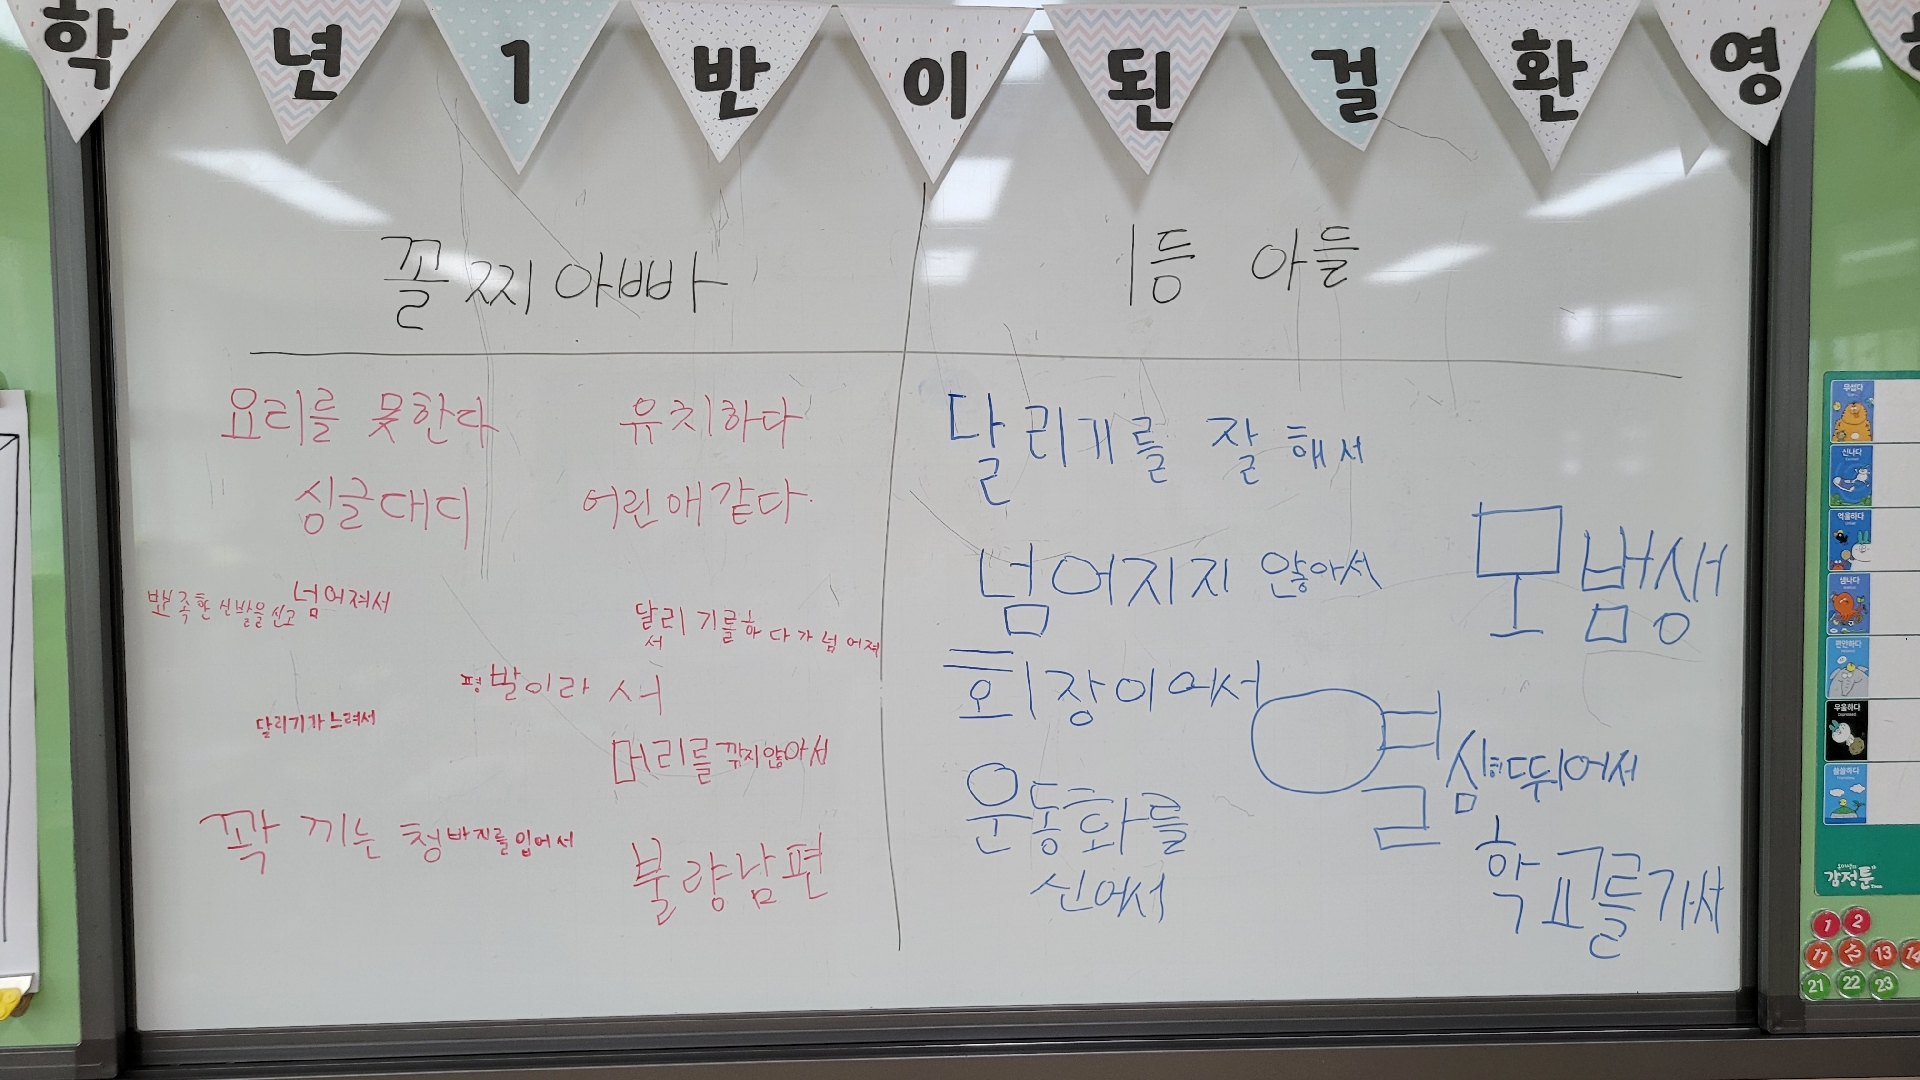 학년 1반이 된 걸 환영
꼴찌 아빠
1등 아들
요리를 못한다
유치하다
싱글대디
어린애 같다
뾰족한 신발을 신고 넘어져서
달리기를 하다가 넘어져
서
평발이라서
달리기가 느려서
머리를 깎지 않아서
꽉 끼는 청바지를 입어서
불량남편
달리기를 잘해서
넘어지지 않아서
모범생
회장이어서
열심히 뛰어서
운동화를
신어서
학교를 가서
무섭다
신나다
억울하다
편안하다
우울하다
감정툰
1 2
11 12 13 14
21 22 23